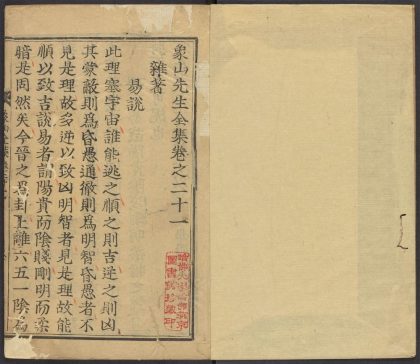 象山先生全集卷之二十一
雜著
易說
此理塞宇宙誰能逃之順之則吉逆之則凶
其蒙蔽則為昏愚通徹則為明智昏愚者不
見是理故多逆以致凶明智者見是理故能
順以致吉說易者謂陽貴而陰賤剛明而柔
暗是固然矣今晉之為卦上離六五一陰為